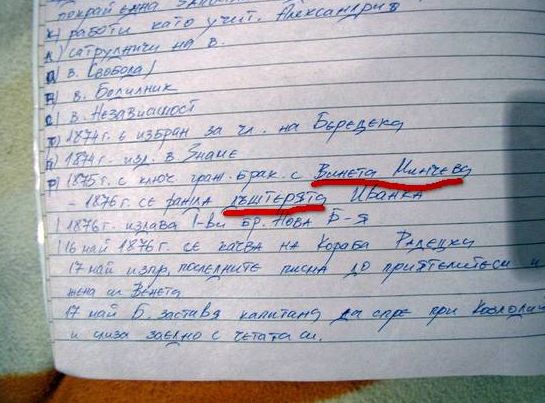 покрай една
к) работи като учит. Александрия
л) сатрулничи на в.
в. Свобола)
в. Болилник
в. Независност
1874г. е избран за чл. на Беределка
1874г. изл. в. Знаме
1875г. с ключ граж. брак. с Винета Минчева
- 1876г. се ражла лъштерята Иванка
1876г. излава 1-ви бр. Нова Б-я
16 май 1876г. се качва на Кораба Радецки
17 май изпр. последните писма до приятелитеси и
жена си Венета
17 май Б. заставя капитана да спре при Козлодуи
и слиза заедно с четата си.